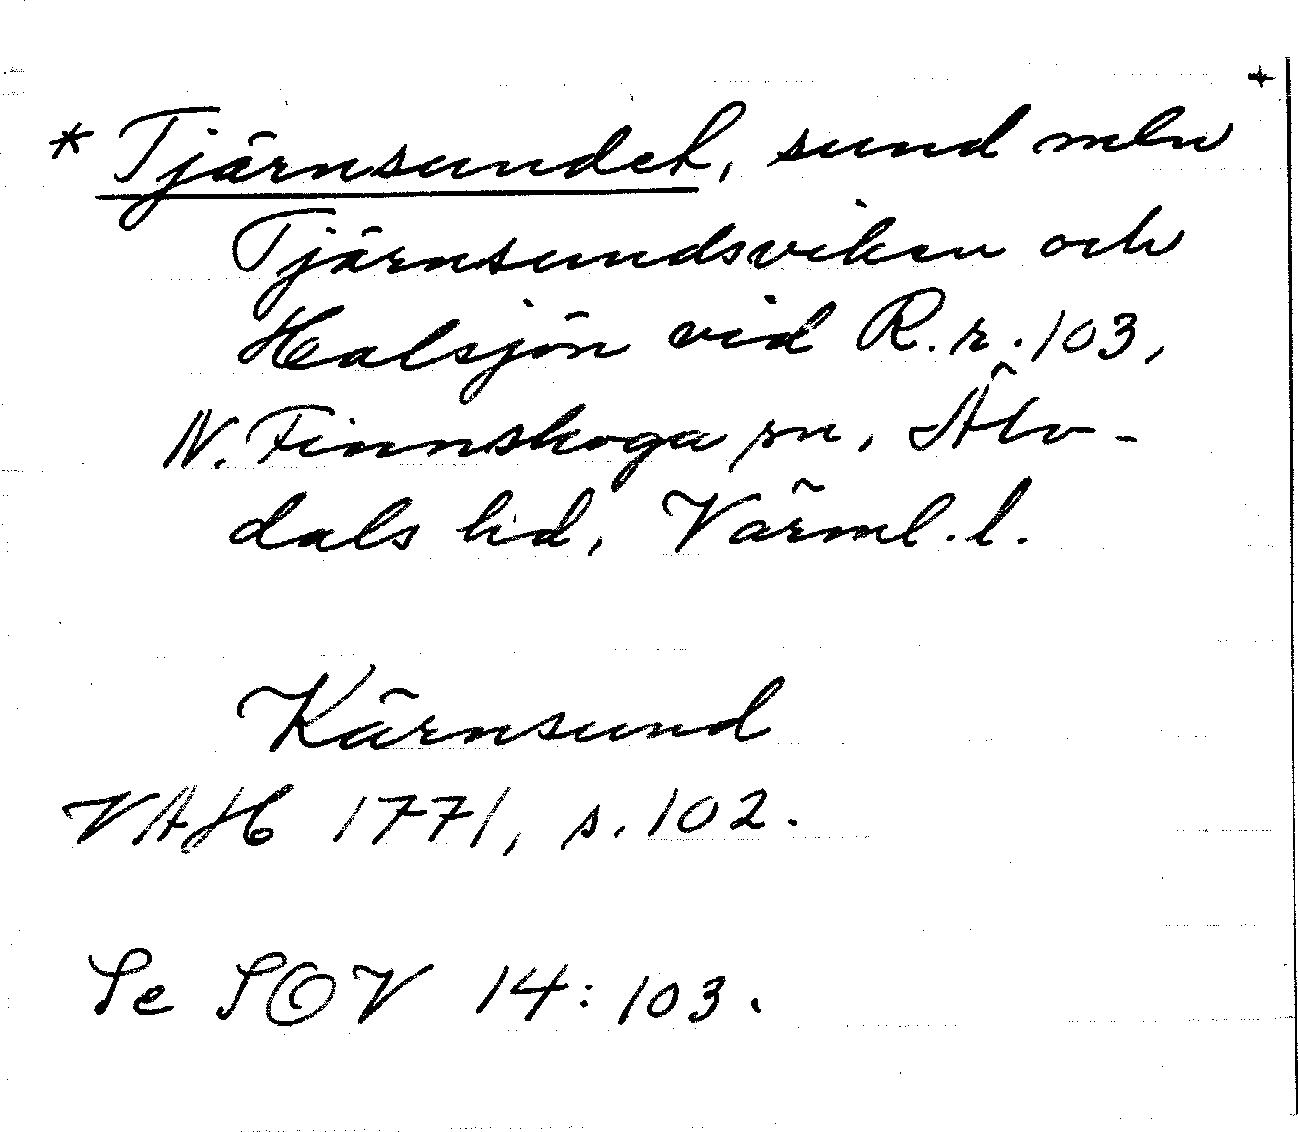 +
* Tjärnsundet, sund mln
Tjärnsundsviken och
Halsjön vid R.r. 103,
N. Finnskoga sn, Älv-
dals hd, Värml. l.
Kärnsund
VAH 1771, s. 102.
Se SOV 14:103.